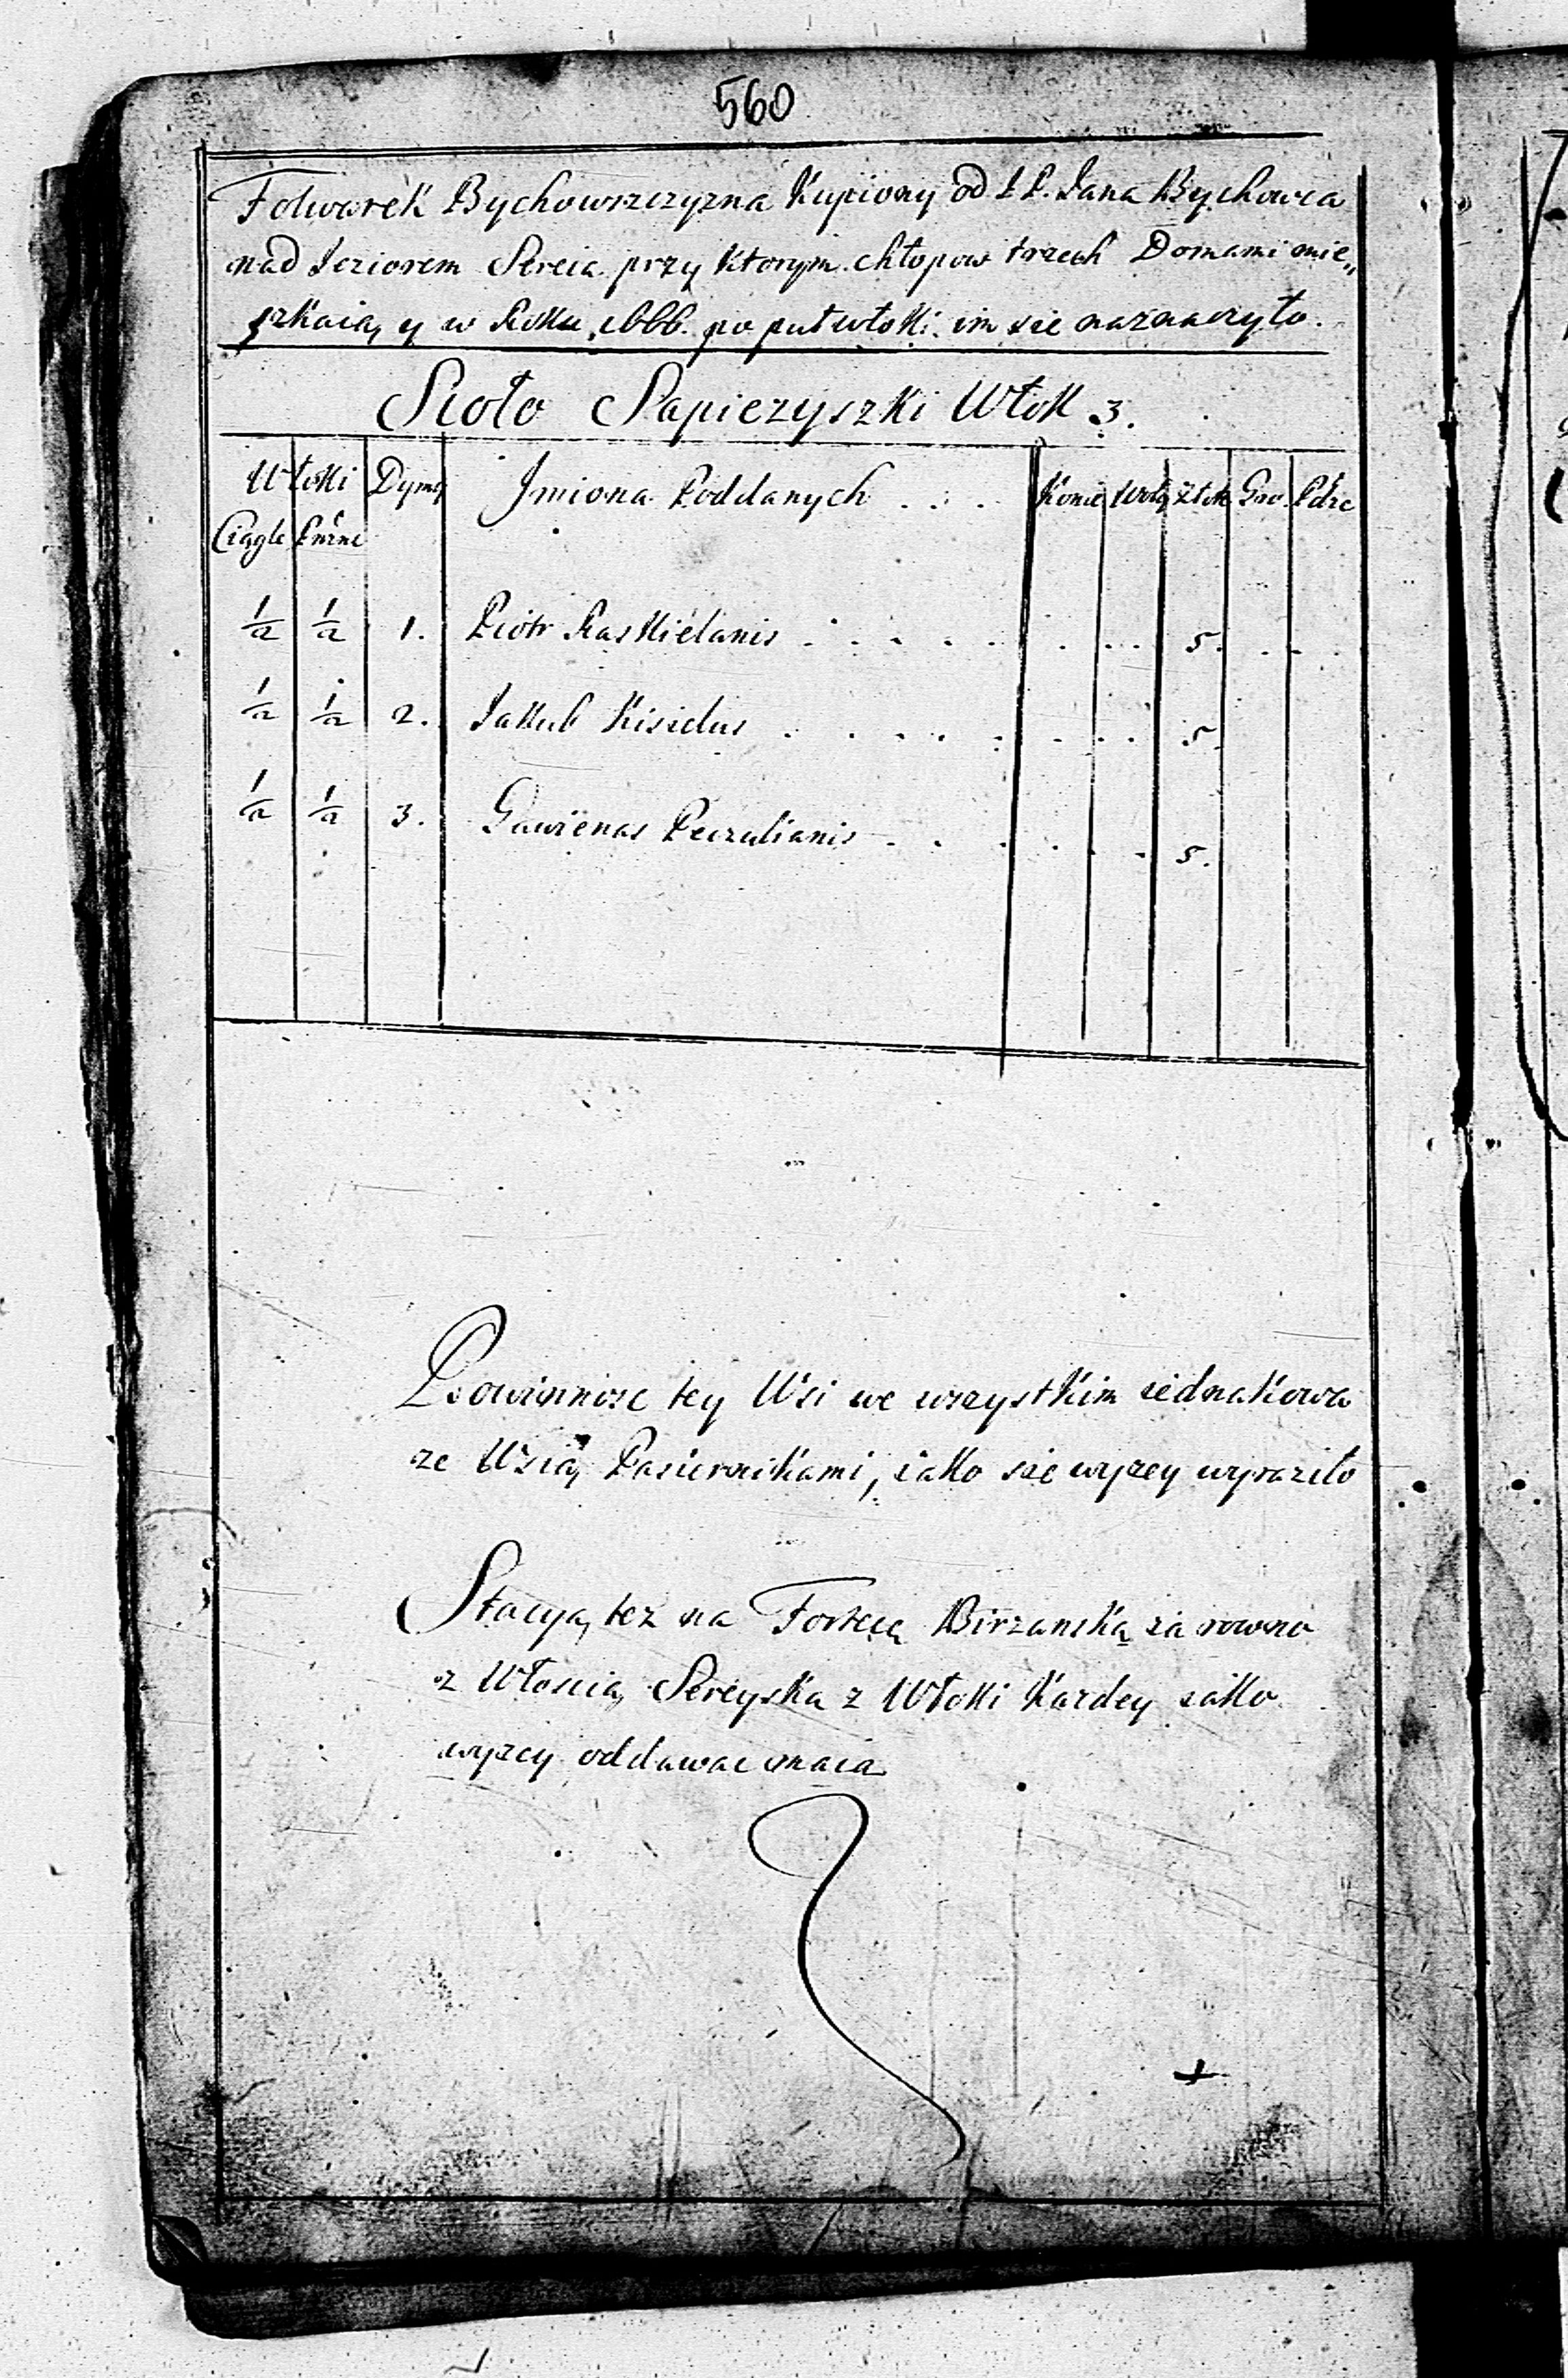 560
Folwarek Bychowszczyzna Kupiony od I P. Jana Bychowca
nad Jeziorem Sereia przy Ktorym chłopow trzech Domami mie„
szkaią y w Roku 1666. po puł włoki im sie naznaczyło.
Sioło Sapiezyszki Włok 3.
Włoki Dymy Jmiona Poddanych . . . Konie Woły Złote Gro.
Ciągłe
1/2 1/2 1. Piotr . . . . . 5.
1/2 1/2 2. Jakub Kisielus . . . . . 5.
1/2 1/2 3. Gawienas . . . . . 5.
Powinnosc tey Wsi we wszystkim iednakowa
ze Wsią Pasiernikami, iako sie wyzey wyraziło
Stacyą tez na Fortecą Birzanską za rowno
z Włoscią Sereyska z Włoki Kazdey iako
wyzey oddawac maia